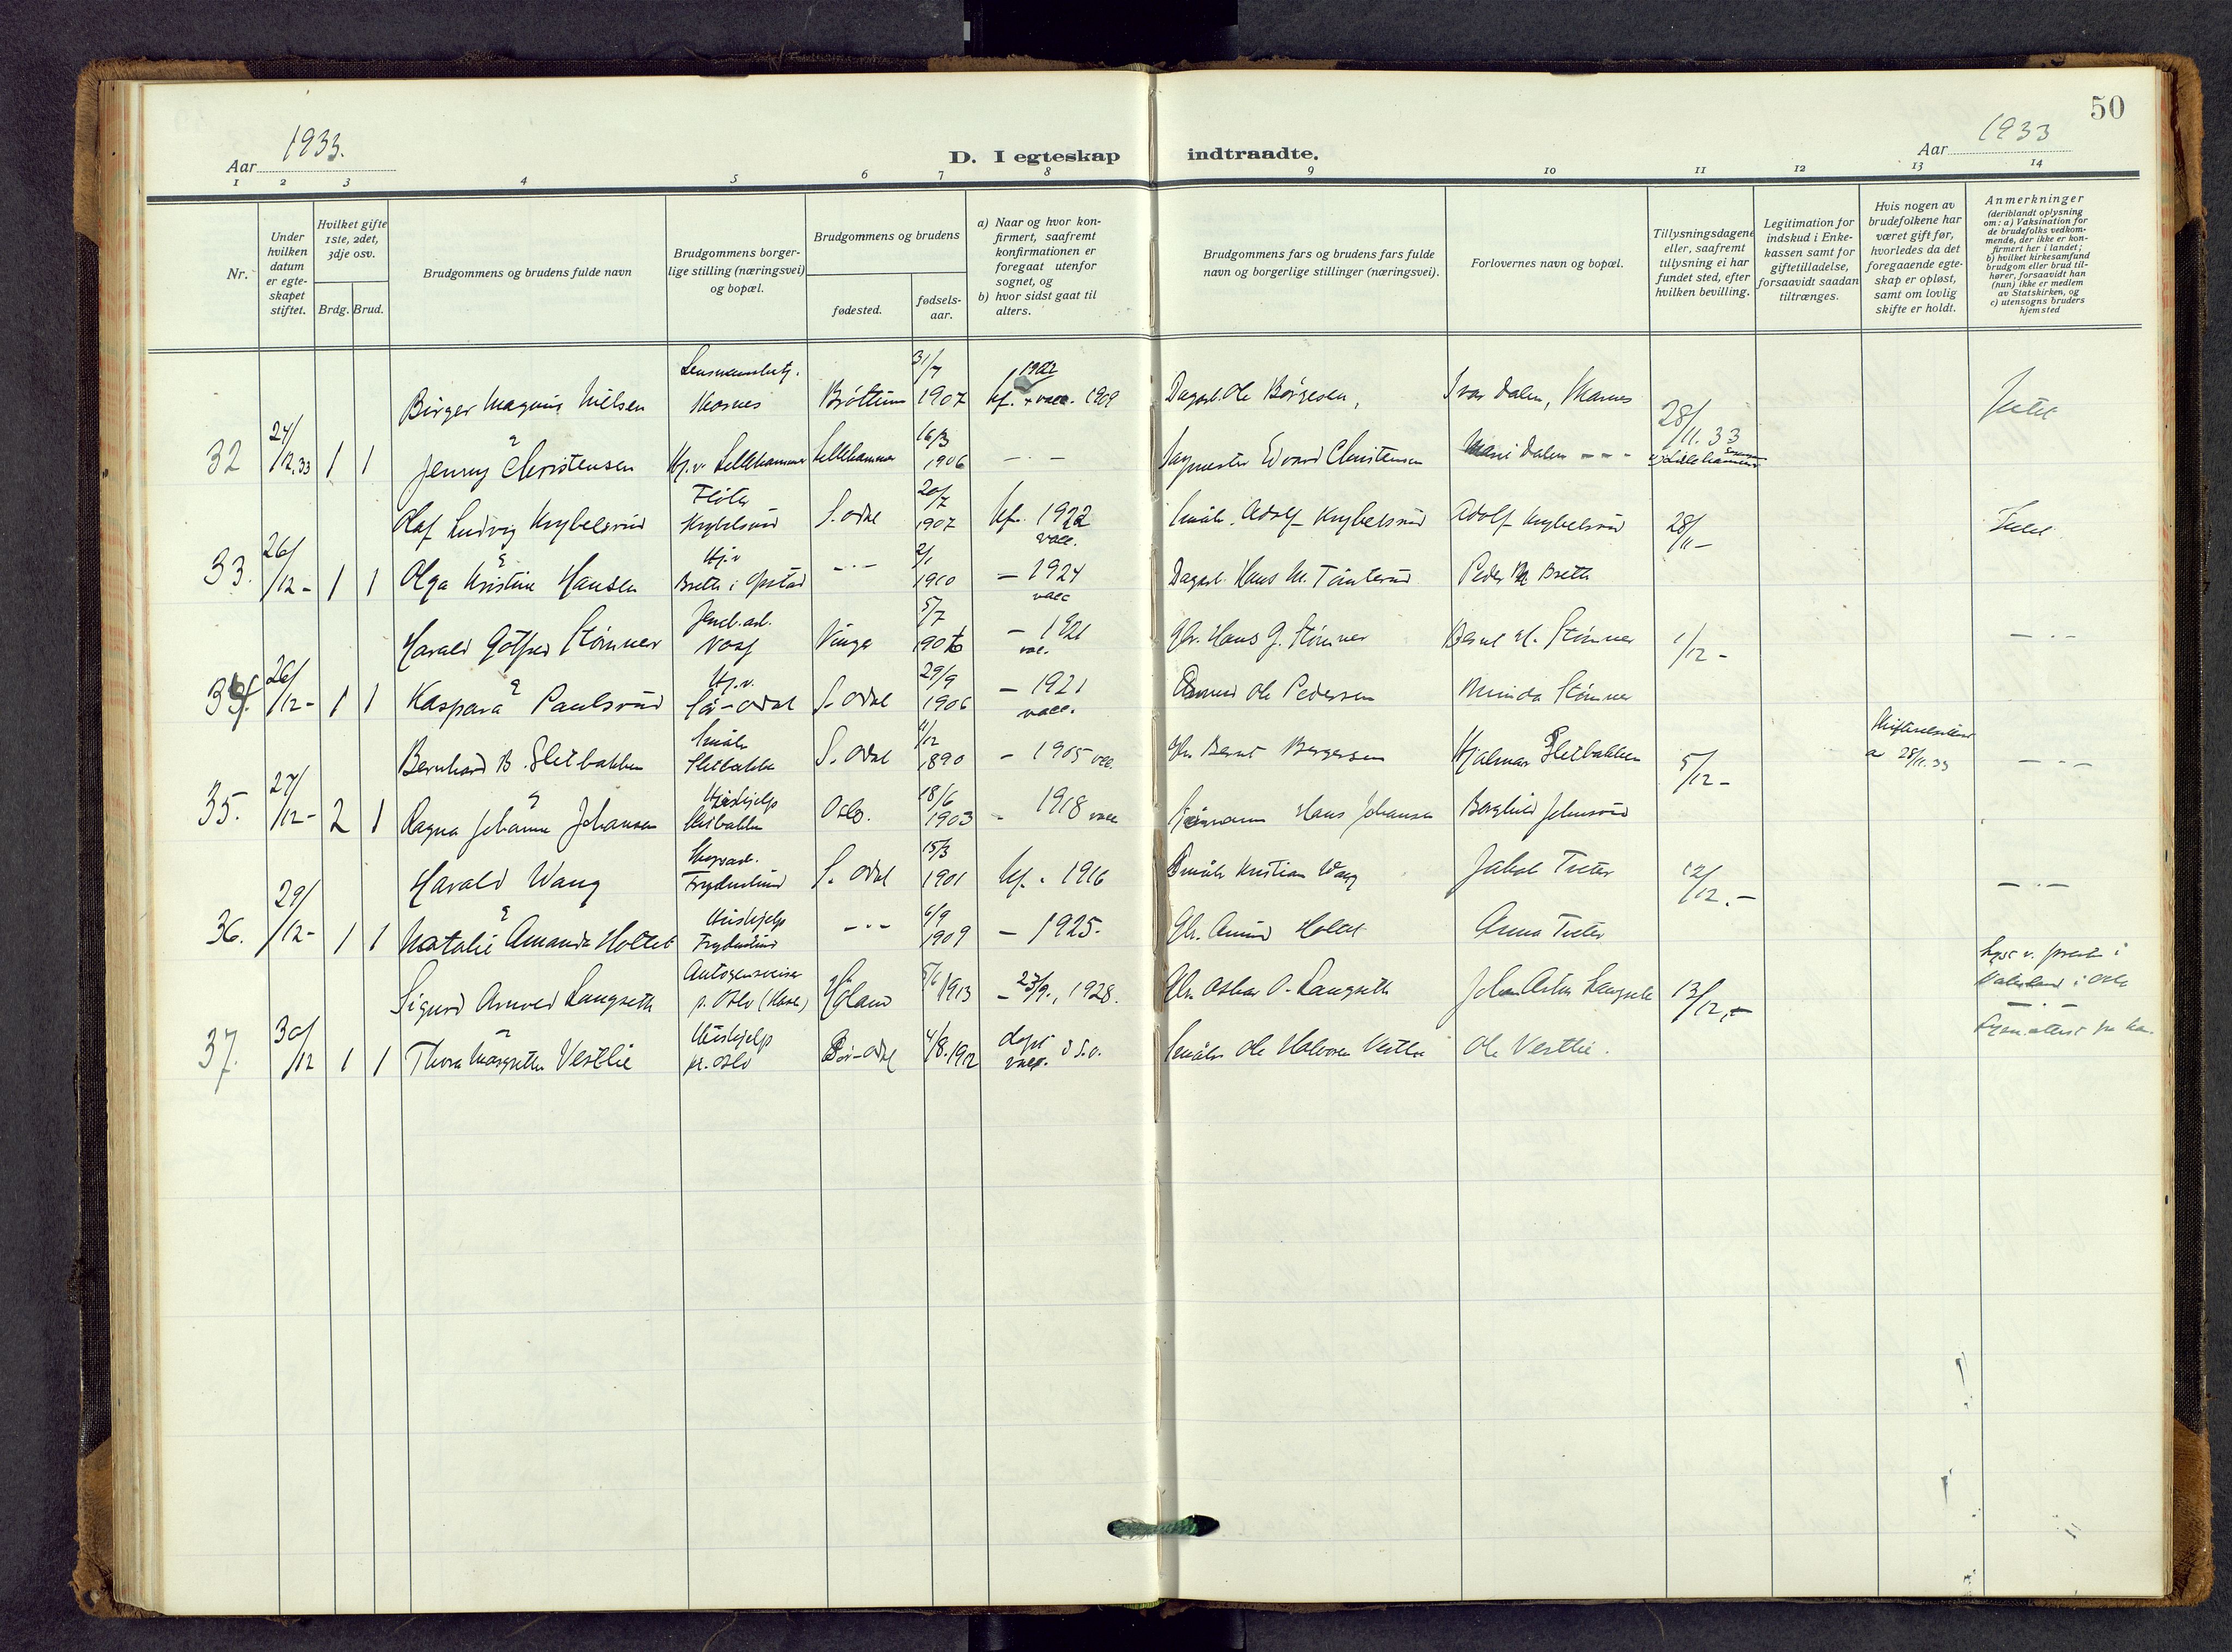 50
Aar 1933.
D. I egteskap indtraadte.
Aar 1933
1 2 3 4 5 6 7 8 9 10 11 12 13 14
Nr.
Under hvilken datum er egte- skapet stiftet.
Hvilket gifte 1ste, 2det, 3dje osv.
Brdg. Brud.
Brudgommens og brudens fulde navn
Brudgommens borger- lige stilling (næringsvei) og bopæl.
Brudgommens og brudens
fødested.
fødsels- aar.
a) Naar og hvor kon- firmert, saafremt konfirmationen er foregaat utenfor sognet, og
b) hvor sidst gaat til alters.
Brudgommens fars og brudens fars fulde navn og borgerlige stillinger (næringsvei).
Forlovernes navn og bopæl.
Tillysningsdagene eller, saafremt tillysning ei har fundet sted, efter hvilken bevilling.
Legitimation for indskud i Enke- kassen samt for giftetilladelse, forsaavidt saadan tiltrænges.
Hvis nogen av brudefolkene har været gift før, hvorledes da det foregaaende egte- skap er opløst, samt om lovlig skifte er holdt.
Anmerkninger (deriblandt oplysning om: a) Vaksination for de brudefolks vedkom- mende, der ikke er kon- firmert her i landet; b) hvilket kirkesamfund brudgom eller brud til- hører, forsaavidt han (hun) ikke er medlem av Statskirken, og c) utensogns bruders hjemsted
Birger Magnus Nielsen Brøttum 31/7 1907 1922 kf. + vacc. Dagarb. Ole Børresen, Ivar Dalen,
32 24/12.33 1 1 Jenny Christensen Hj.v. Lillehammer Lillehammer 16/3 1906 - . - Edvard Christensen Marie Dalen - - - 28/11.33 Lillehammer
Olaf Ludvig Krybelsrud Fløter Krybelsrud S. Odal 20/7 1907 kf. 1922 vacc. Småbr. Adolf Krybelsrud Adolf Krybelsrud 28/11 -
33. 26/12 - 1 1 Olga Kristine Hansen Hj.v. - . - 2/1 1910 - 1924 vacc Dagarb. Hans M. Peder M Breth
Harald Gotfred Stømner Vinger 5/7 - 1921 vac. Gbr. Hans G. Stømner Bernt H. Stømner 1/12 - - . -
34. 26/12 - 1 1 Kaspara Paulsrud Hj.v. Sø-Odal S. Odal 29/9 1906 - 1921 vacc. Ole Pedersen Minda Stømner
Bernhard B. Sletbakken Småbr. Sletbakken S. Odal 1890 - 1905 vacc. Gbr. Bernt Bergersen Hjalmar Sletbakken 5/12 - a 28/11.33 - . -
35. 27/12 - 2 1 Ragna Johanne Johansen Hushjelp Sletbakken Oslo. 18/6 1903 - 1918 vacc Hans Johansen Borghild
Harald Wang S. Odal 15/3 1901 kf. - 1916 Småbr Kristian Wang Jakob Tveter 12/12. - - . -
36. 29/12 - 1 1 Natalie Amanda Holtet Hushjelp - . - 6/9 1909 - 1925. Gbr. Amund Holtet Anna Tveter
Sigurd Arnold Langseth Autogensveiser p. Oslo Høland 1913 - 23/9., 1928. Gbr. Oskar O. Langseth Johan Langseth 13/12. - Lyst v. prest i i Oslo
37. 30/12 1 1 Thora Margrethe Vestlie Hushjelp p. Oslo Sør-Odal 4/8.1912 døpt vacc. Småbr. Ole Halvorsen Vestlie Ole Vestlie.